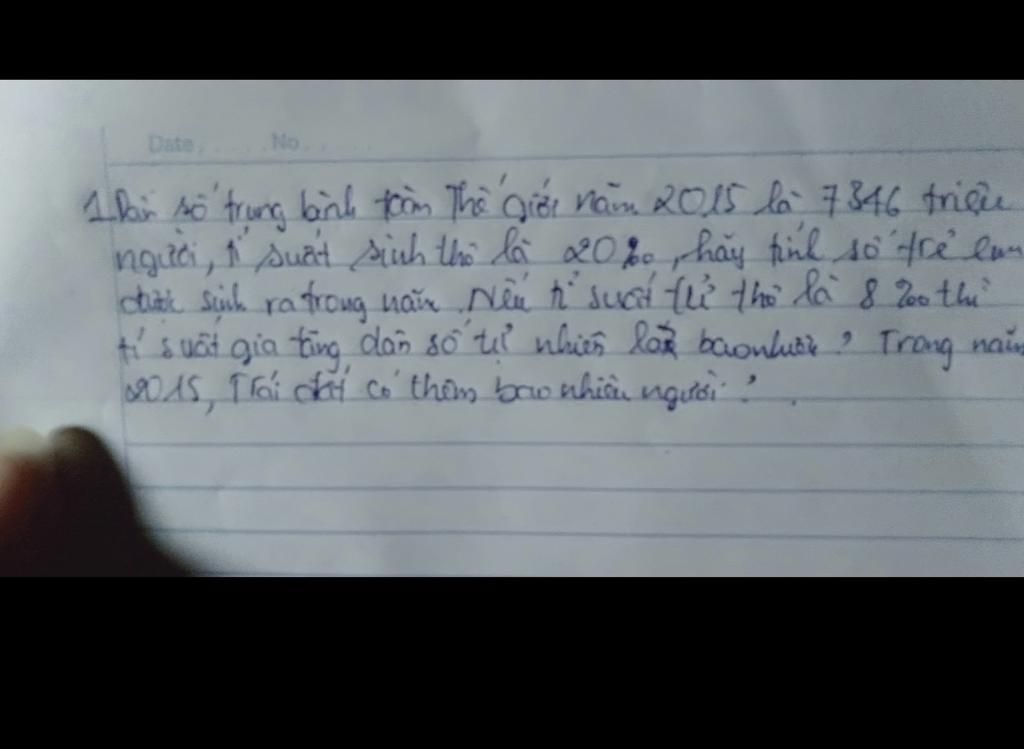 Date, ..... No. .....
1. Dân số trung bình toàn Thế giới năm 2015 là 7346 triệu
người, tỉ suất sinh thô là 20‰, hãy tính số trẻ em
được sinh ra trong năm. Nếu tỉ suất tử thô là 8‰ thì
tỉ suất gia tăng dân số tự nhiên là bao nhiêu? Trong năm
2015, Trái đất có thêm bao nhiêu người?